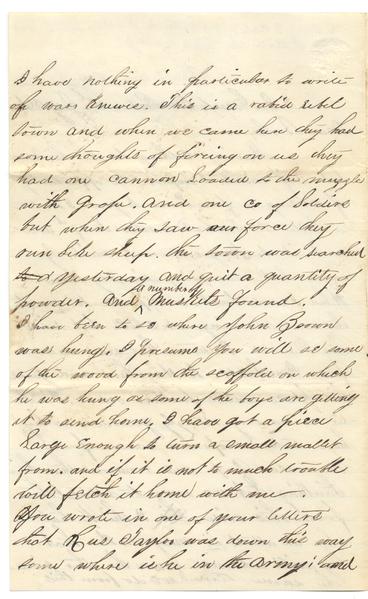 I have nothing in particular to write
of wars knewse. This is a rabid rebel
town and when we came here they had
some thoughts of fireing on us they
had one cannon loaded to the muzzle
with Grape. and one co of Soldiers
but when they saw our force they
run like sheep. the town was searched
yesterday and quit a quantity of
powder. And a number of Muskets found.
I have been to se where John Brown
was hung. I presume you will se some
of the wood from the scaffold on which
he was hung as some of the boys are giting
it to send home. I have got a piece
Large Enough to turn a small mallet
from. and if it is not to much trouble
will fetch it home with me.
You wrote in one of your letters
that Rus Taylor was down this way
some where is he in the Army; and